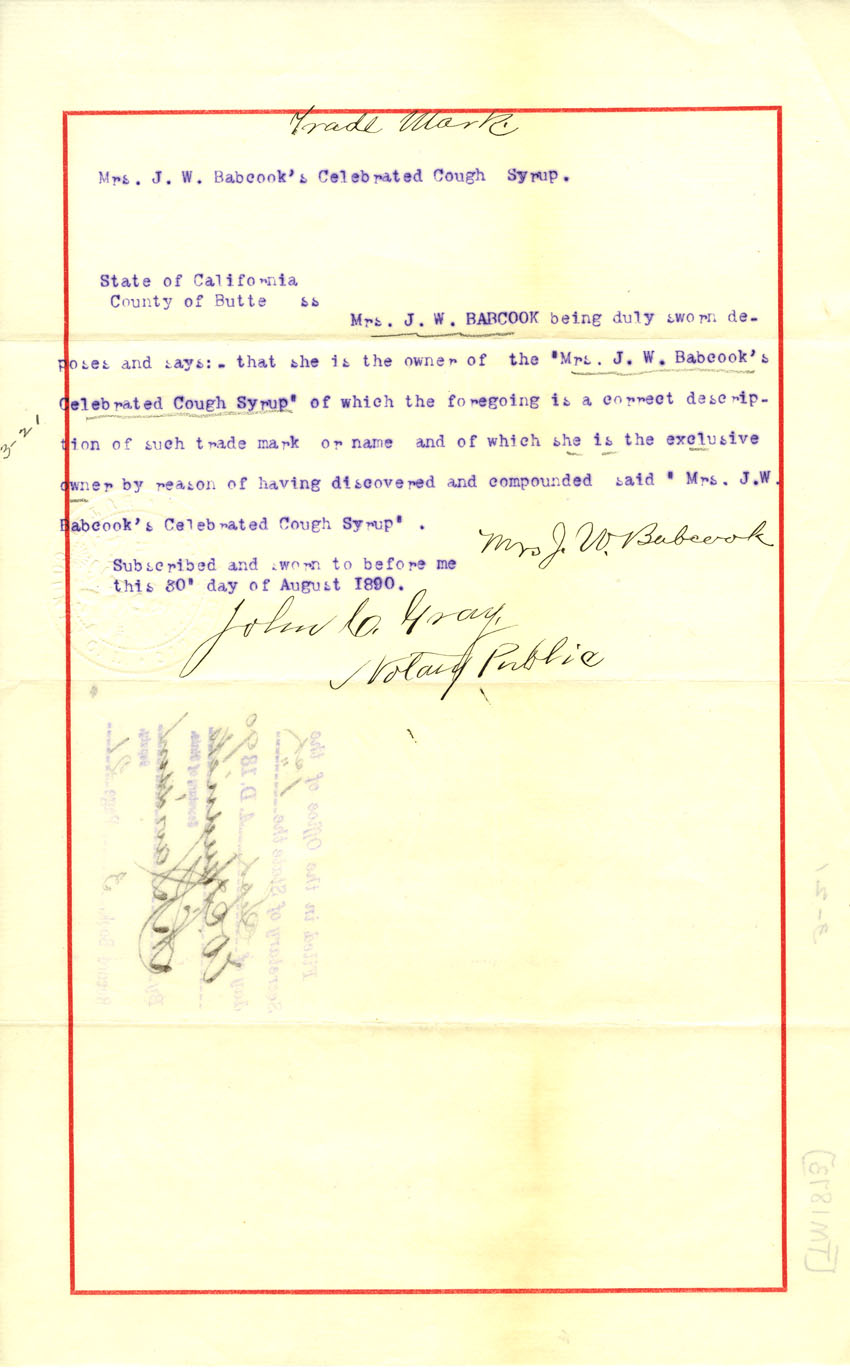 Trade Mark.
Mrs. J. W. Babcook's Celebrated Cough Syrup.
State of California
County of Butte ss
Mrs. J. W. BABCOOK being duly sworn de-
poses and says:- that she is the owner of the "Mrs. J. W. Babcook's
Celebrated Cough Syrup" of which the foregoing is a correct descrip-
tion of such trade mark or name and of which she is the exclusive
owner by reason of having discovered and compounded said " Mrs. J.W.
Babcook's Celebrated Cough Syrup" .
3-21
Mrs J. W. Babcook
Subscribed and sworn to before me
this 30" day of August 1890.
John C. Gray,
Notary Public
Filed in the Office of the
Secretary of State the 1st
day of Sept A.D. 1890
Secretary of State
By
Deputy
Record Book 3 Page 21
3-21
TM1873